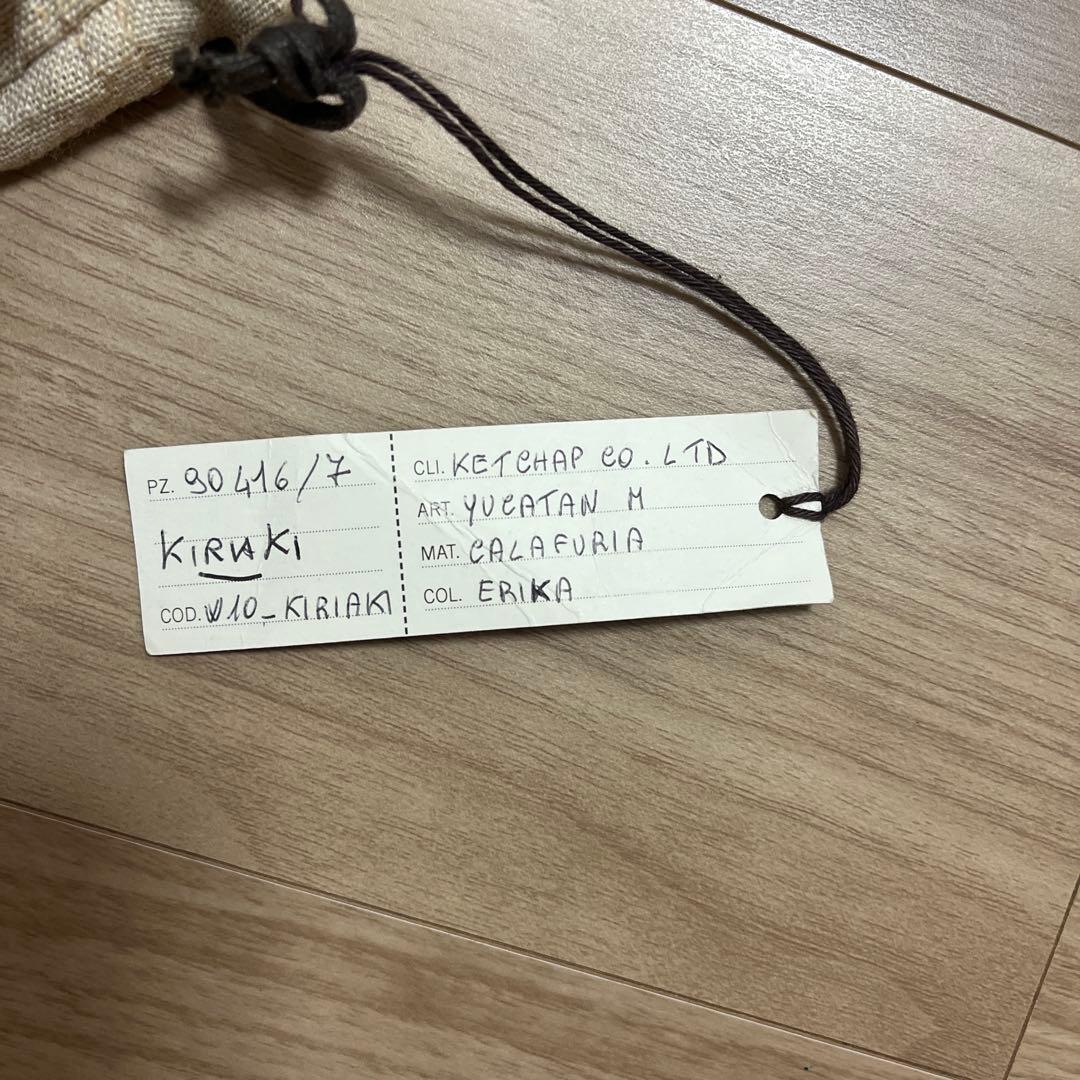 PZ. 90416/7
KIRIAKI
COD. W10_KIRIAKI
CLI. KETCHAP CO. LTD
ART. YUCATAN M
MAT. CALAFURIA
COL. ERIKA